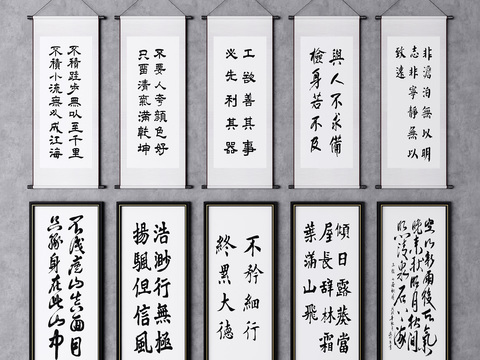 不積跬步無以至千里
不積小流無以成江海
不要人夸顏色好
只畱清氣滿乾坤
工欲善其事
必先利其器
與人不求備
檢身若不及
非澹泊無以明
志非寧靜無以
致遠
不識廬山真面目
只緣身在此山中
浩渺行無極
揚颿但信風
不矜細行
終累大德
傾日露葵當
屋長辭林霜
葉滿山飛
空山新雨後天氣
晚來秋明月松間
照清泉石上流